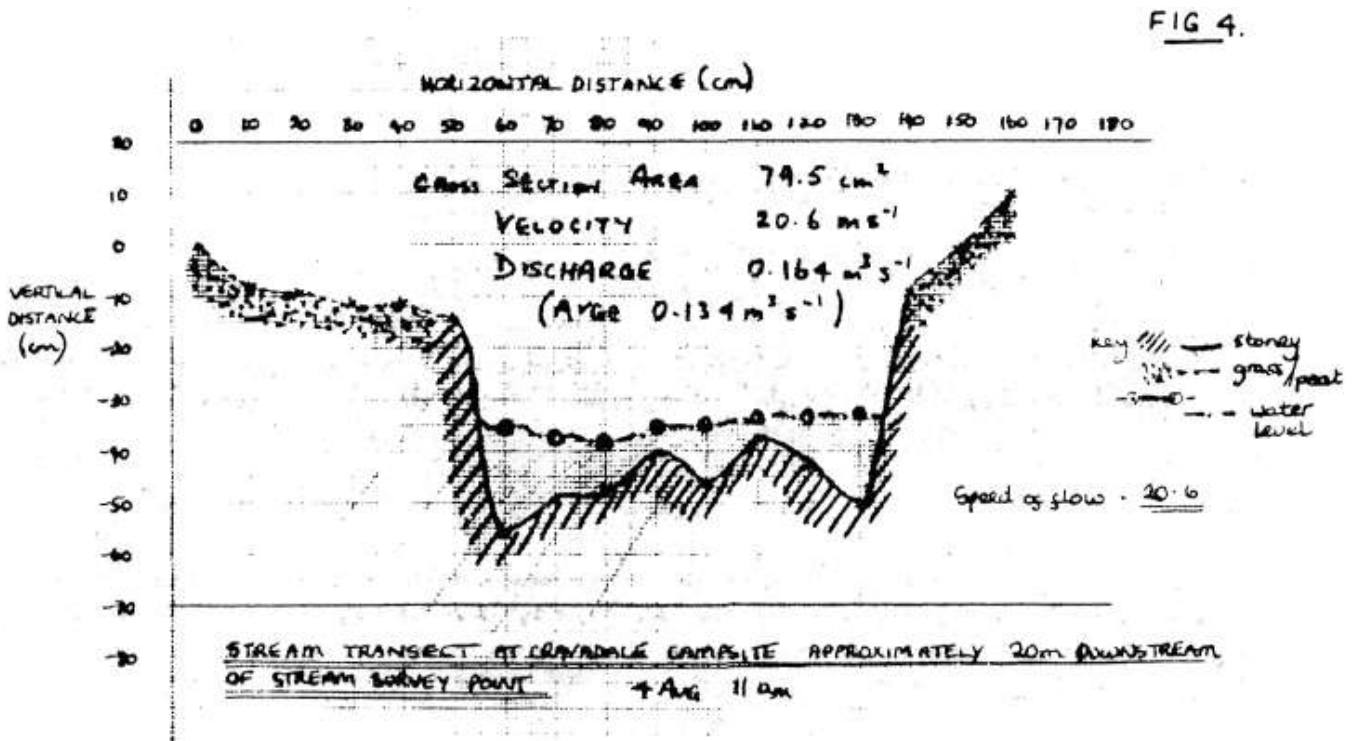 FIG 4.
HORIZONTAL DISTANCE (cm)
0 10 20 30 40 50 60 70 80 90 100 110 120 130 140 150 160 170 180
20
10
0
-10
-20
-30
-40
-50
-60
-70
-80
VERTICAL
DISTANCE
(cm)
CROSS SECTION AREA 79.5 cm²
VELOCITY 20.6 ms⁻¹
DISCHARGE 0.164 m³s⁻¹
(AVGE 0.134 m³s⁻¹)
Key stoney
grass/peat
water
level
Speed of flow - 20.6
STREAM TRANSECT AT CRAVADALE CAMPSITE APPROXIMATELY 20m DOWNSTREAM
OF STREAM SURVEY POINT 4 AUG 11 am